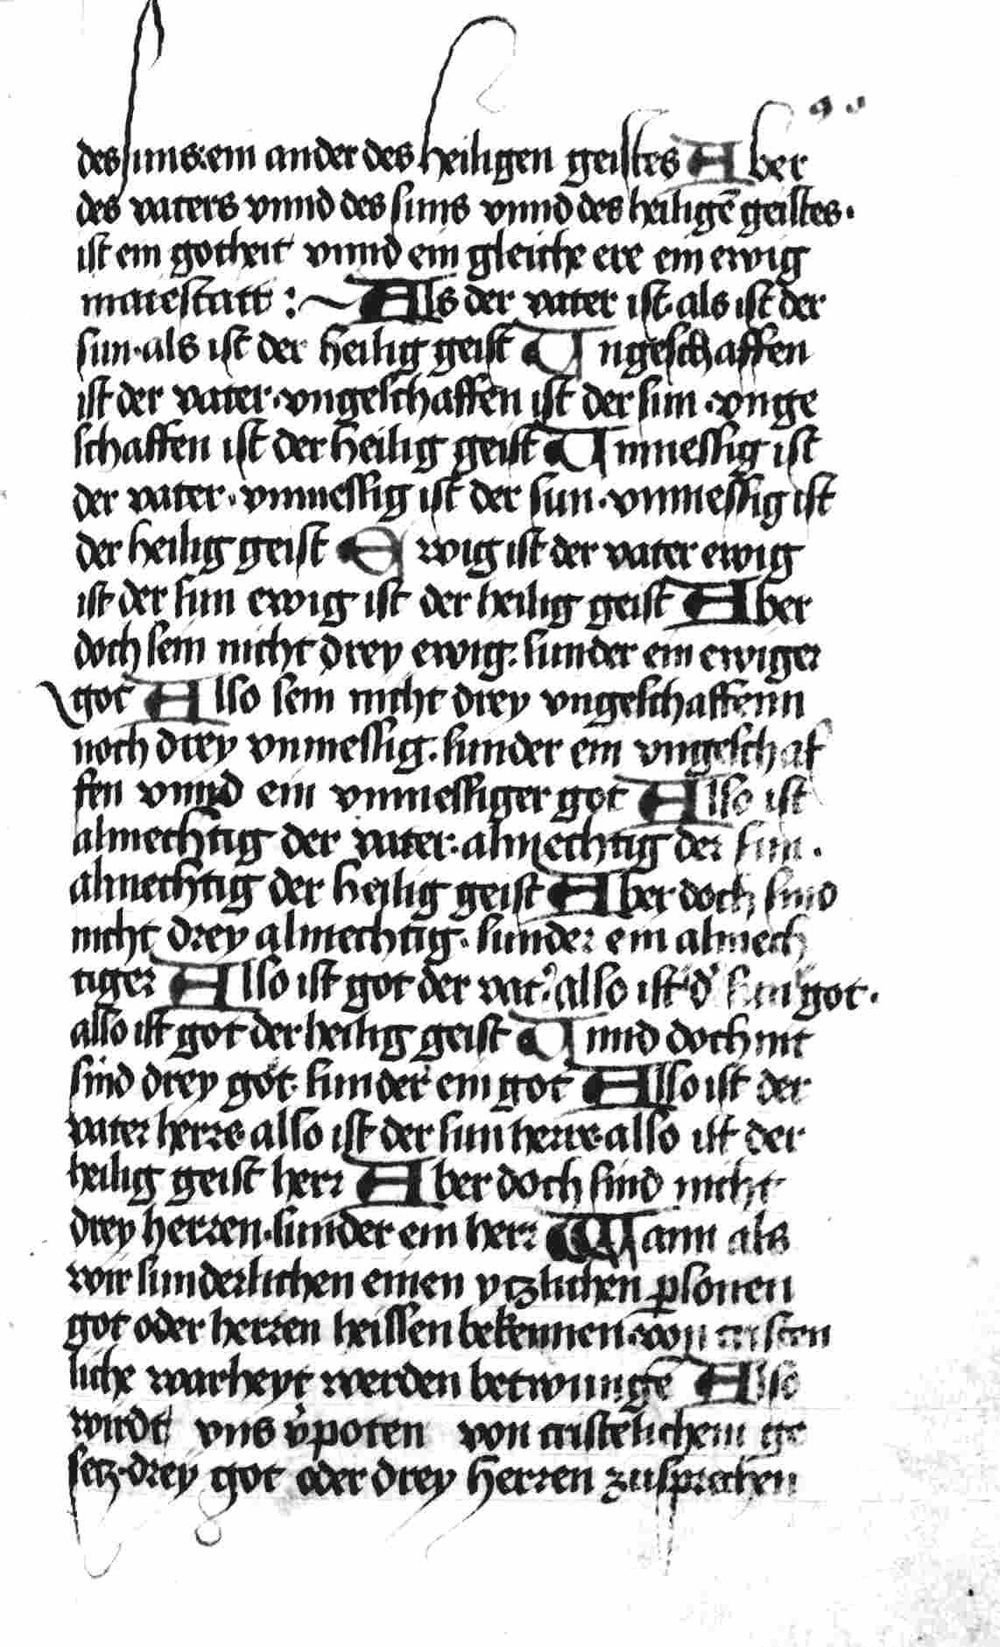 des suns: ein ander des heiligen geistes Aber
des vaters vnnd des suns vnnd des heiligē geistes.
ist ein gotheit vnnd ein gleiche ere ein ewig
maiestatt :~ Als der vater ist. als ist der
sun. als ist der heilig geist Vngeschaffen
ist der vater. vngeschaffen ist der sun. vnge
schaffen ist der heilig geist Vnmessig ist
der vater. vnmessig ist der sun. vnmessig ist
der heilig geist Ewig ist der vater ewig
ist der sun ewig ist der heilig geist Aber
doch sein nicht drey ewig: sunder ein ewiger
got Also sein nicht drey vngeschaffenn
noch drey vnmessig: sunder ein vngeschaf
fen vnnd ein vnmessiger got Also ist
almechtig der vater: almechtig der sun.
almechtig der heilig geist Aber doch sind
nicht drey almechtig. sunder ein almech
tiger Also ist got der vat' also ist d' sun got.
also ist got der heilig geist Vnnd doch nit
sind drey got: sunder ein got Also ist der
vater herre also ist der sun herre. also ist der
heilig geist herr Aber doch sind nicht
drey herren. sunder ein herr Wann als
wir sunderlichen einen ytzlichen ꝑsonen
got oder herren heissen bekennen. von cristen
liche warheyt werden betwungē Also
wirdt vns v'poten von cristēlichem ge
setz. drey got oder drey herren zusprechen